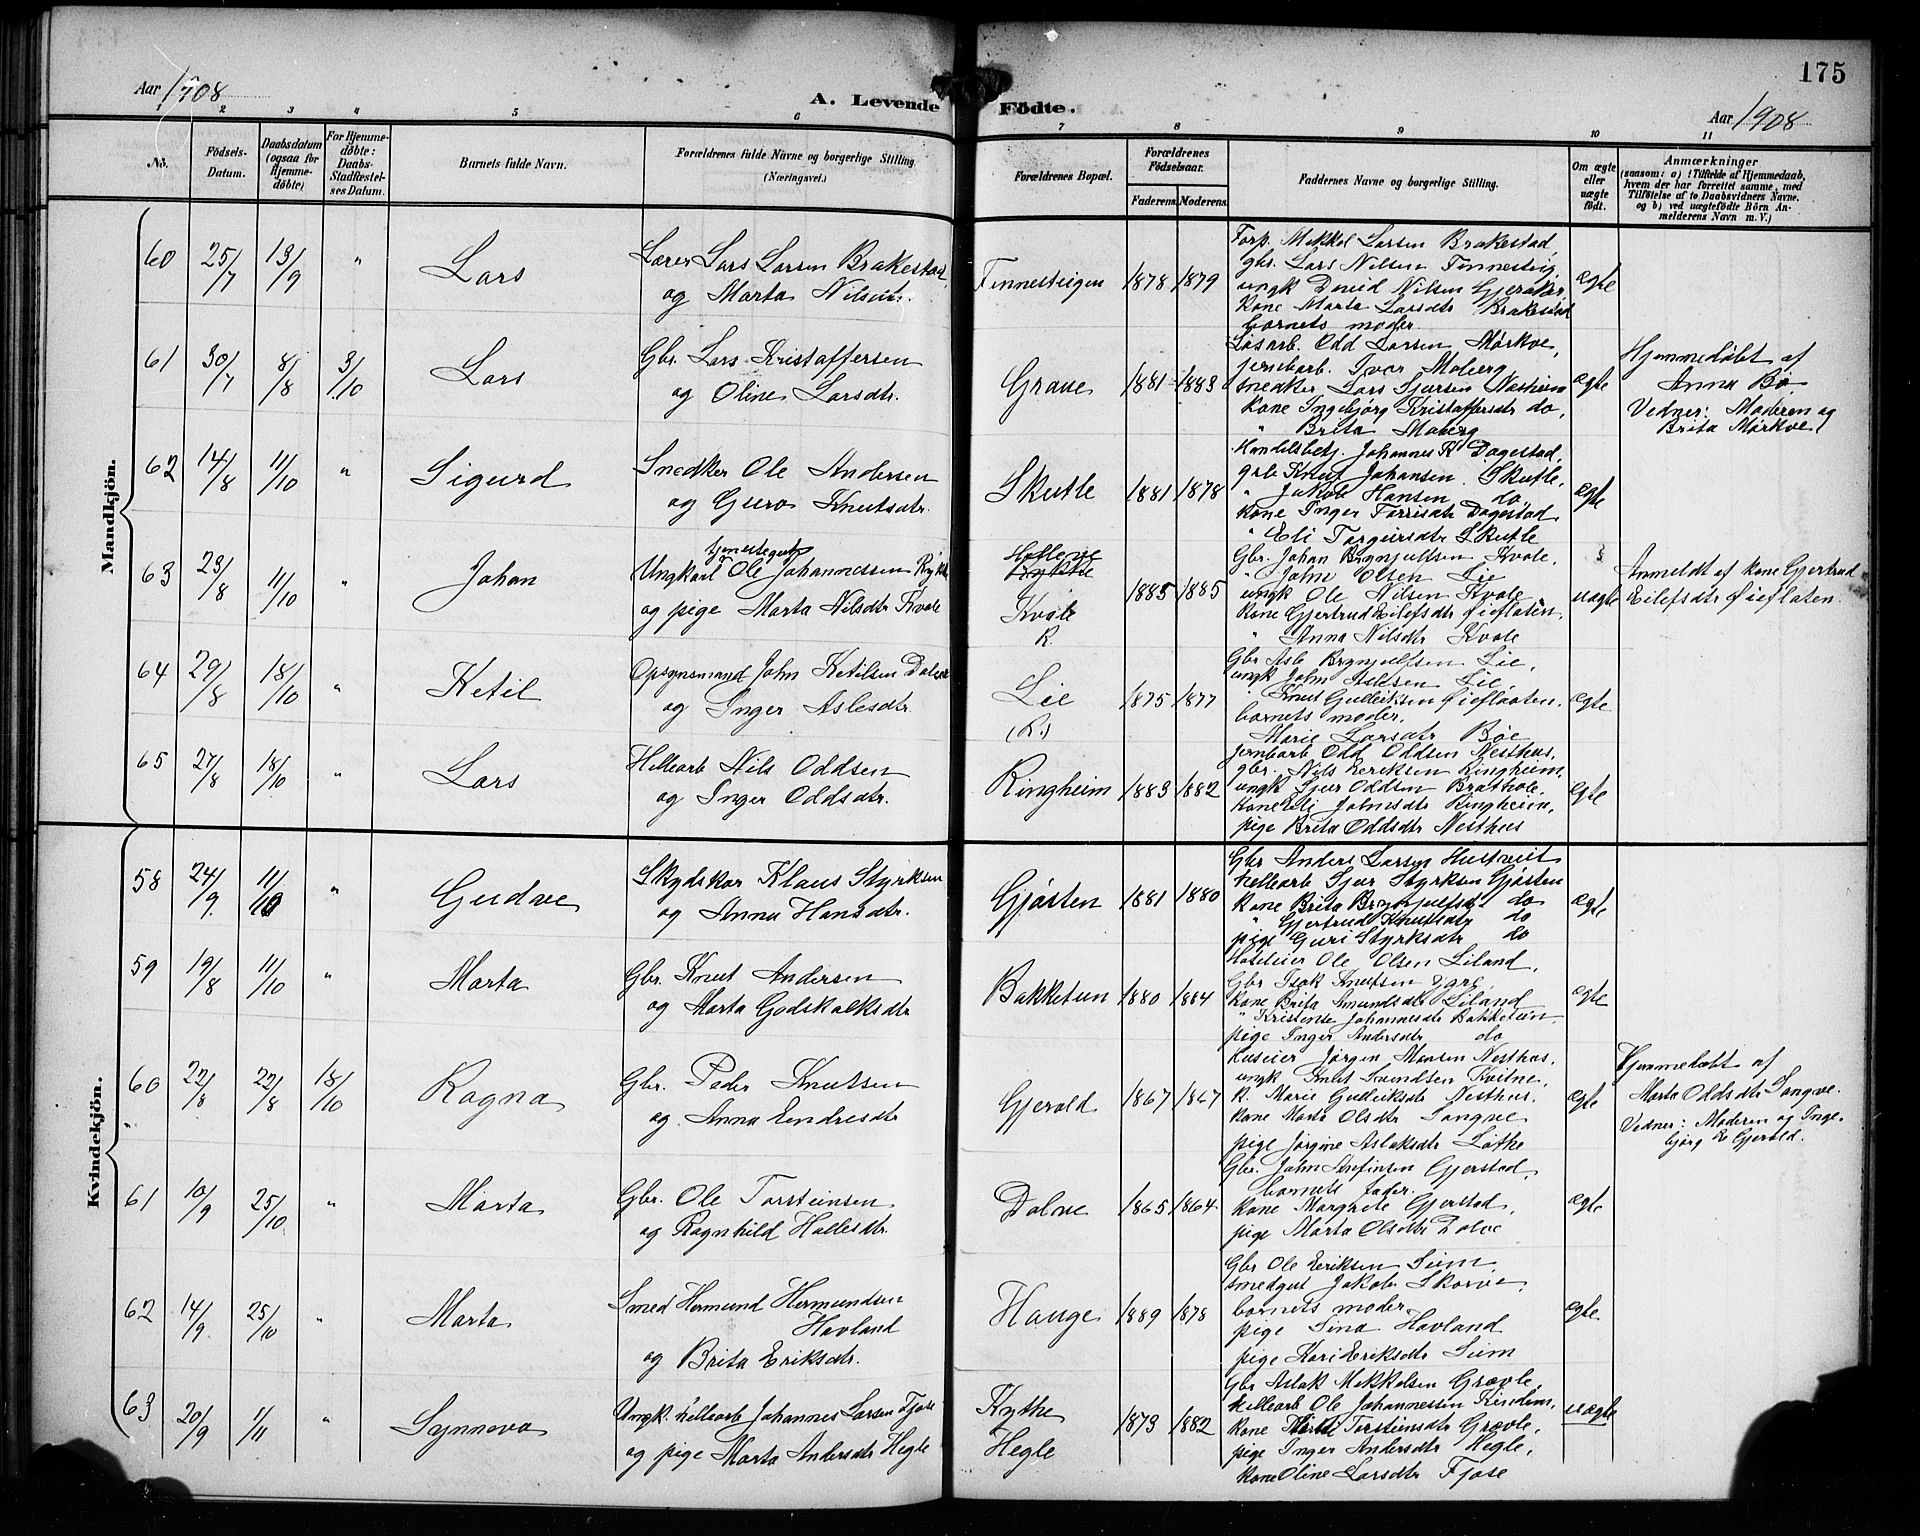 175
Aar 1908
A. Levende Födte.
Aar 1908
1 2 3 4 5 6 7 8 9 10 11
No.
Födsels-Datum.
Daabsdatum (ogsaa for Hjemmedøbte)
For Hjemmedøbte: Daabs-Stadfæstelses Datum.
Barnets fulde Navn.
Forældrenes fulde Navne og borgerlige Stilling. (Næringsvei.)
Forældrenes Bopæl.
Forældrenes Födselsaar.
Faderens Moderens
Faddernes Navne og borgerlige Stilling.
Om ægte eller uægte födt.
Anmærkninger
(saasom: a) i Tilfælde af Hjemmedaab,
hvem der har forrettet samme, med
Tilføielse af to Daabsvidners Navne,
og b) ved uægtefödte Börn An-
melderens Navn m. V.)
Mandkjön.
60 25/7 13/9 " Lars
Lærer Lars Larsen Brakestad
og Marta Nilsdtr.
Finnesteigen 1878 1879
Forp. Mekkel Larsen Brakestad,
gbr. Lars Nilsen Finnesteig,
ungk David Nilsen Gjeraker,
kone Marta Larsdtr Brakestad
barnets moder.
ægte
61 30/7 8/8 3/10 Lars
Gbr. Lars Kristaffersen
og Oline Larsdtr.
Graue 1881 1883
Løsarb. Odd Larsen Mørkve,
jernbarb. Ivar Moberg
snedker Lars Sjursen Nesheim
kone Ingebjørg Kristaffersdtr do,
" Brita Moberg
ægte
Hjemmedøbt af
Anna Bø
Vidner: Moderen og
Brita Mørkve
62 14/8 11/10 " Sigurd
Snedker Ole Andersen
og Guro Knutsdtr.
Skutle 1881 1878
Handelsbetj. Johannes K Dagestad,
gbr Knut Johansen Skutle,
" Jakob Hansen do
kone Inger Torrisdtr Dagestad
" Eli Torgeirsdtr Skutle
ægte
63 23/8 11/10 " Johan
tjenestegut
Ungkarl Ole Johannessen Rykke
og pige Marta Nilsdtr Kvale
Helleve
Rykke
Kvale
R.
1885 1885
Gbr. Johan Brynjulfsen Kvale,
" John Olsen Lie
ungk Ole Nilsen Kvale,
kone Gjertrud Eilefsdtr Øieflaten,
" Anna Nilsdtr Kvale
uægte
Anmeldt af kone Gjertrud
Eilefsdtr Øieflaten.
64 29/8 18/10 " Ketil
Opsynsmand John Ketilsen Dolve
og Inger Aslesdtr.
Lie
(R.)
1875 1877
Gbr Asle Brynjulfsen Lie,
ungk John Aslesen Lie,
" Knut Gulleiksen Øieflaaten,
barnets moder,
Marie Larsdtr Bøe
ægte
65 27/8 18/10 " Lars
Hellearb Nils Oddsen
og Inger Oddsdtr.
Ringheim 1883 1882
jernbarb Odd Oddsen Nesthus,
gbr. Nils Eriksen Ringheim,
ungk Sjur Oddsen Brathole,
kone Eli Johnsdtr Ringheim,
pige Brita Oddsdtr Nesthus
ægte
Kvindekjön.
58 24/9 11/10 " Gudve
Skydskar Klaus Styrksen
og Anna Hansdtr.
Gjøsten 1881 1880
Gbr Anders Larsen Hustveit
hellearb Sjur Styrksen Gjøsten
kone Brita Brynjulfsd do
" Gjertrud Knutsdtr do
pige Guri Styrksdtr do
ægte
59 19/8 11/10 " Marta
Gbr. Knut Andersen
og Marta Godskalksdtr
Bakketun 1880 1884
Hoteleier Ole Olsen Liland,
Gbr Isak Knutsen Ygre,
kone Brita Amundsdtr Liland
" Kristense Johannesdtr Bakketun,
pige Inger Andersdtr do
ægte
60 22/8 22/8 18/10 Ragna
Gbr. Peder Knutsen
og Anna Endresdtr
Gjerald 1867 1867
Huseier Jørgen Monsen Nesthus,
ungk Knut Svendsen Kvitne,
k. Marie Gulleiksdtr Nesthus,
kone Marta Olsdtr Sangve
pige Jørgine Aslaksdtr Løthe
ægte
Hjemmedøbt af
Marta Oddsdtr Sangve.
Vidner: Moderen og Inge-
bjørg E Gjerald.
61 10/9 25/10 " Marta
Gbr. Ole Torsteinsen
og Ragnhild Hallesdtr.
Dolve 1865 1864
Gbr. John Snefinsen Gjerstad,
barnets fader.
kone Margrete Gjerstad,
pige Marta Olsdtr Dolve
ægte
62 14/9 25/10 " Marta
Smed Hermund Hermundsen
Havland
og Brita Eriksdtr.
Hauge 1889 1878
Gbr Ole Eriksen Sum,
smedgut Jakob Skorve,
barnets moder
pige Sina Havland
pige Kari Eriksdtr Sum
ægte
63 20/9 1/11 " Synneva
Ungk. hellearb Johannes Larsen Fjose
og pige Marta Andersdtr Hegle
Kythe
Hegle
1873 1882
Gbr Aslak Mekkelsen Grævle,
hellearb Ole Johannessen Kindem,
kone Torsteinsdtr Grævle,
pige Inger Andersdtr Hegle,
kone Oline Larsdtr Fjose
uægte